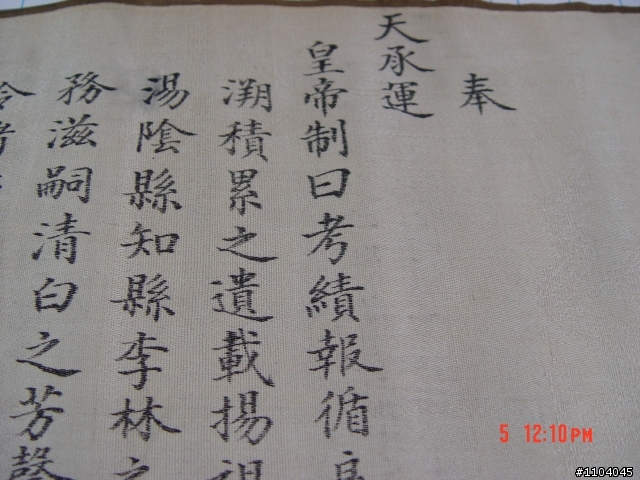 奉
天承運
皇帝制曰考績報循良
溯積累之遺載揚祖
湯陰縣知縣李林之
務滋嗣清白之芳聲
5 12:10PM
#1104045